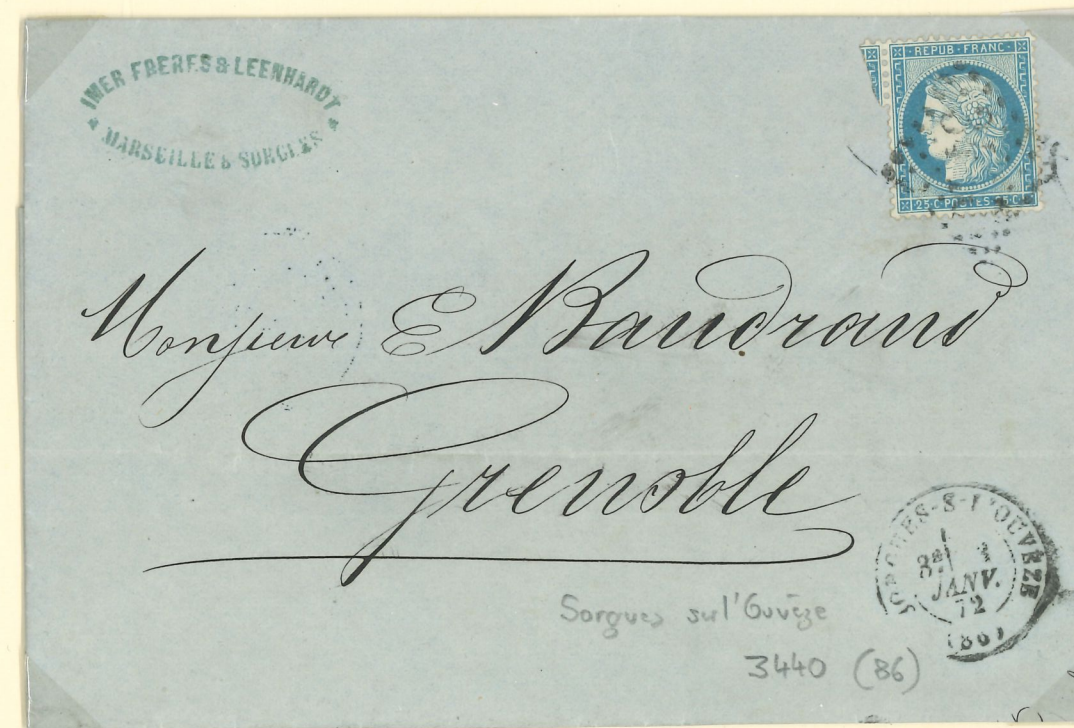 IMER FRERES & LEENHARDT
MARSEILLE & SORGUES
REPUB · FRANC
25 · C · POSTES · 25 · C
Monsieur E Baudrand
Grenoble
SORGUES-S-L'OUVÈZE
JANV.
72
(86)
Sorgues sur l'Ouvèze
3440 (86)